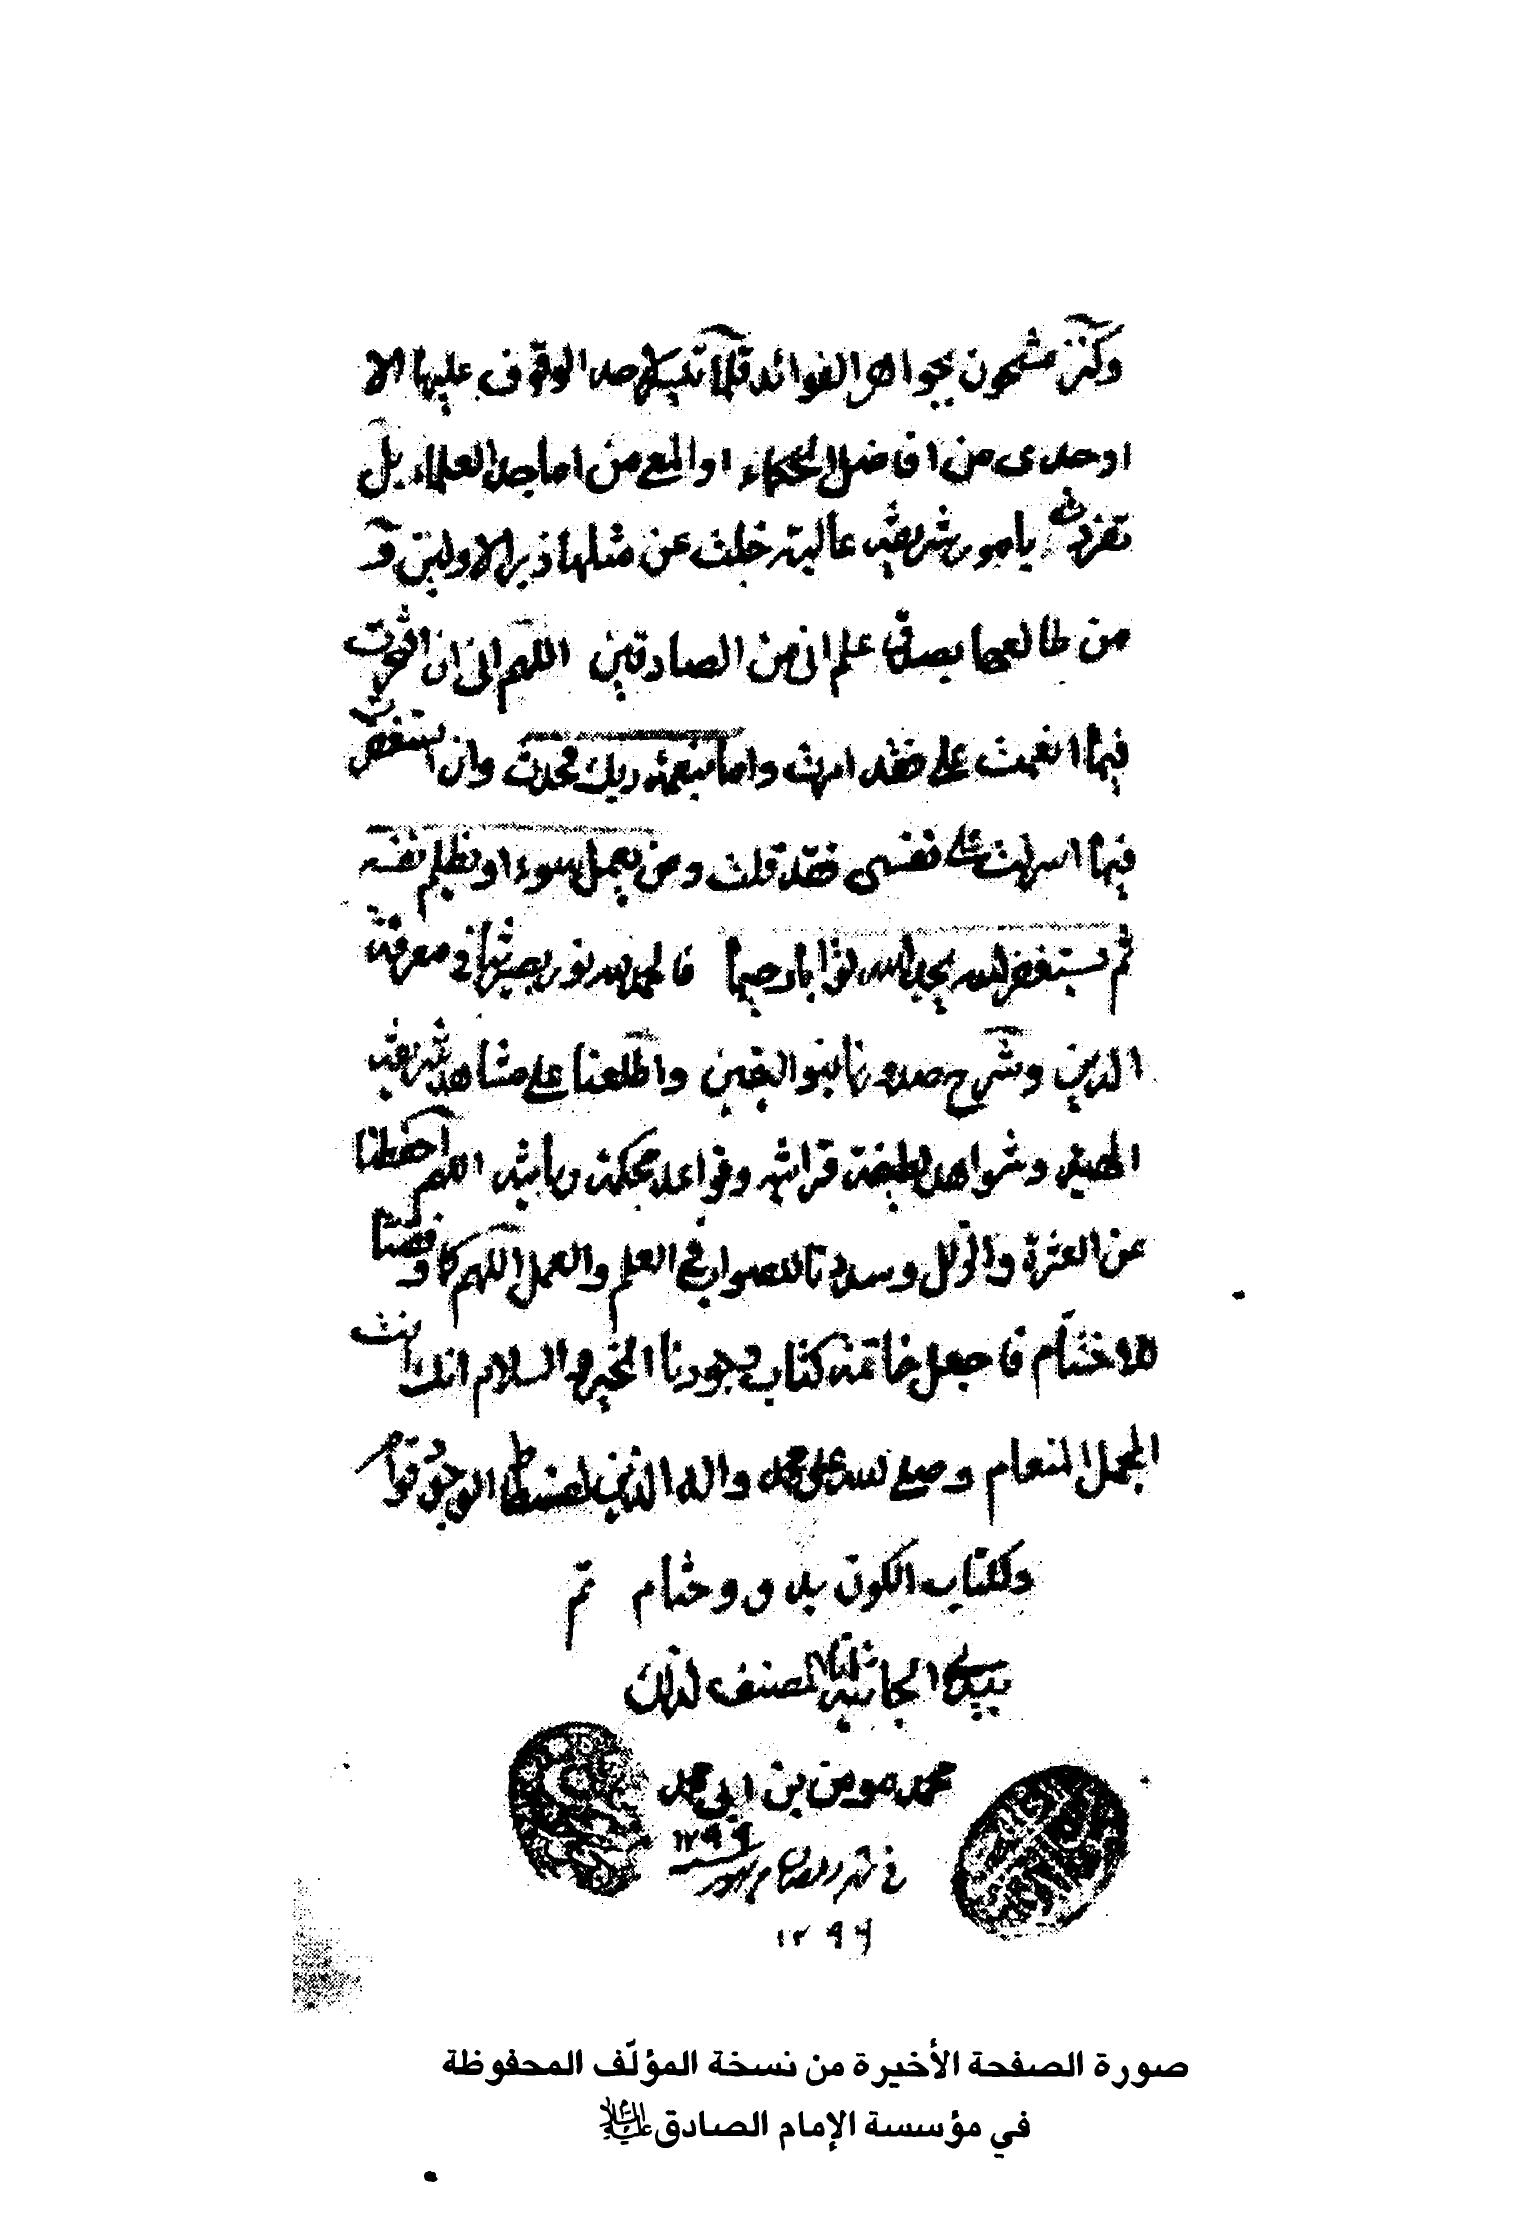 وكنز مشحون بجواهر الفوائد قلما تيسر لاحد الوقوف عليها الا
اوحدى من افاضل الحكماء او المعى من اماجد العلماء بل
تفردت بامور شريفة عالية خلت عن مثلها زبر الاولين و
من طالعها بصدق علم انى من الصادقين اللهم انى ان افتخرت
فيما انعمت على فقد امرت واما بنعمة ربك فحدث وان استغفرت
فيما اسرفت على نفسى فقد قلت ومن يعمل سوء او يظلم نفسه
ثم يستغفر الله يجد الله توابا رحيما فالحمد لله نور بصيرتنا فى معرفة
الدين وشرح صدورنا بنور اليقين واطلعنا على مشاهد شريفة
الهية وشواهد لطيفة قرآنية وقواعد محكمة ربانية اللهم احفظنا
عن العثرة والزلل وسددنا للصواب فى العلم والعمل اللهم كما وفقتنا
للاختتام فاجعل خاتمة كتاب وجودنا الخير والسلام انك انت
المجمل المنعام وصلى الله على محمد واله الذين لفسطاط الوجود قوام
ولكتاب الكون بدو وختام تم
بيد الجانية المصنف لذلك
محمد مومن بن ابى محمد
١٢٩٩
فى شهر رمضان
١٢٩٩
صورة الصفحة الأخيرة من نسخة المؤلّف المحفوظة
في مؤسسة الإمام الصادق عليه السلام